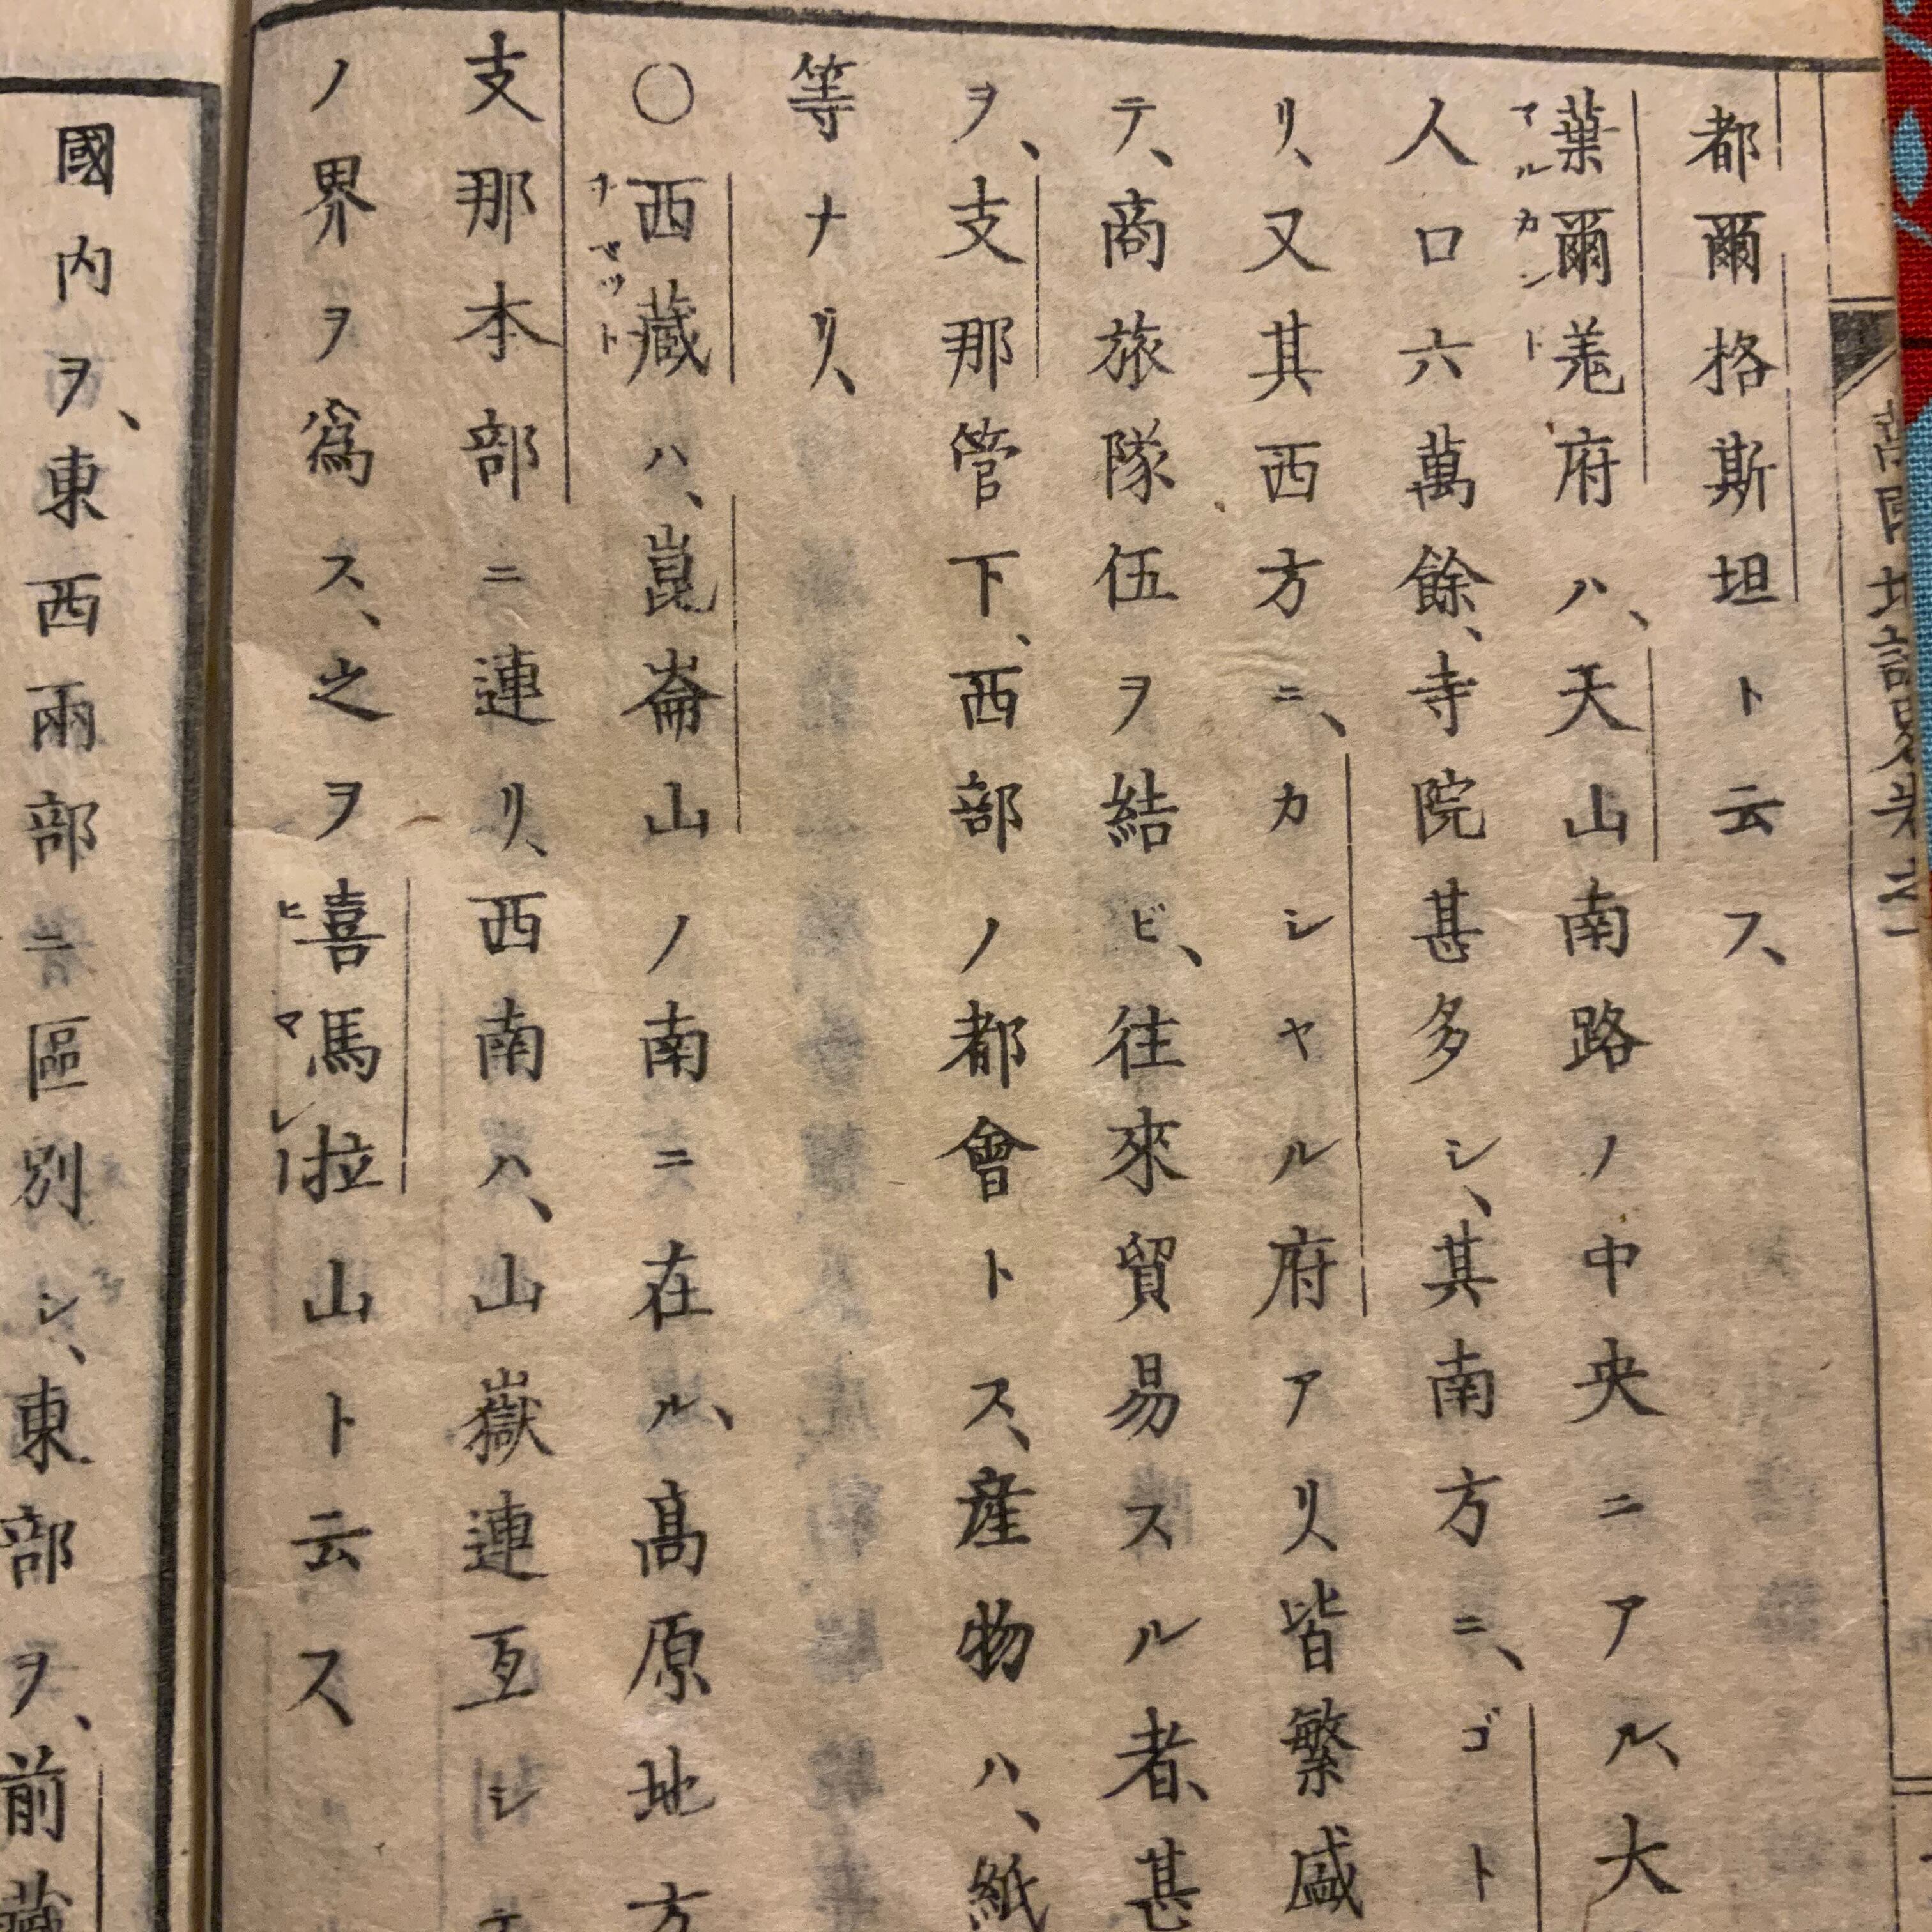 都爾格斯坦ト云フ、
葉爾羌府ハ、天山南路ノ中央ニアル、大
マルカンド
人口六萬餘、寺院甚多シ、其南方ニ、ゴト
リ、又其西方ニ、カシヤル府アリ、皆繁盛
テ、商旅隊伍ヲ結ビ、往來貿易スル者、甚
ヲ、支那管下、西部ノ都會トス、産物ハ、紙
等ナリ、
〇西藏ハ、崑崙山ノ南ニ在ル、高原地方
支那本部ニ連リ、西南ハ、山嶽連亙シテ
ノ界ヲ爲ス、之ヲ喜馬拉山ト云ス
ヒマレー
國内ヲ、東西兩部ニ區別シ、東部ヲ、前藏